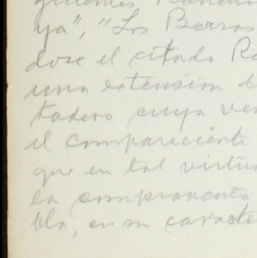 ya", "Los Berros
dose el citado Ra
una extension d
tadero cuya ven
el compareciente
que en tal virtu
la compraventa
blo, en su caracte